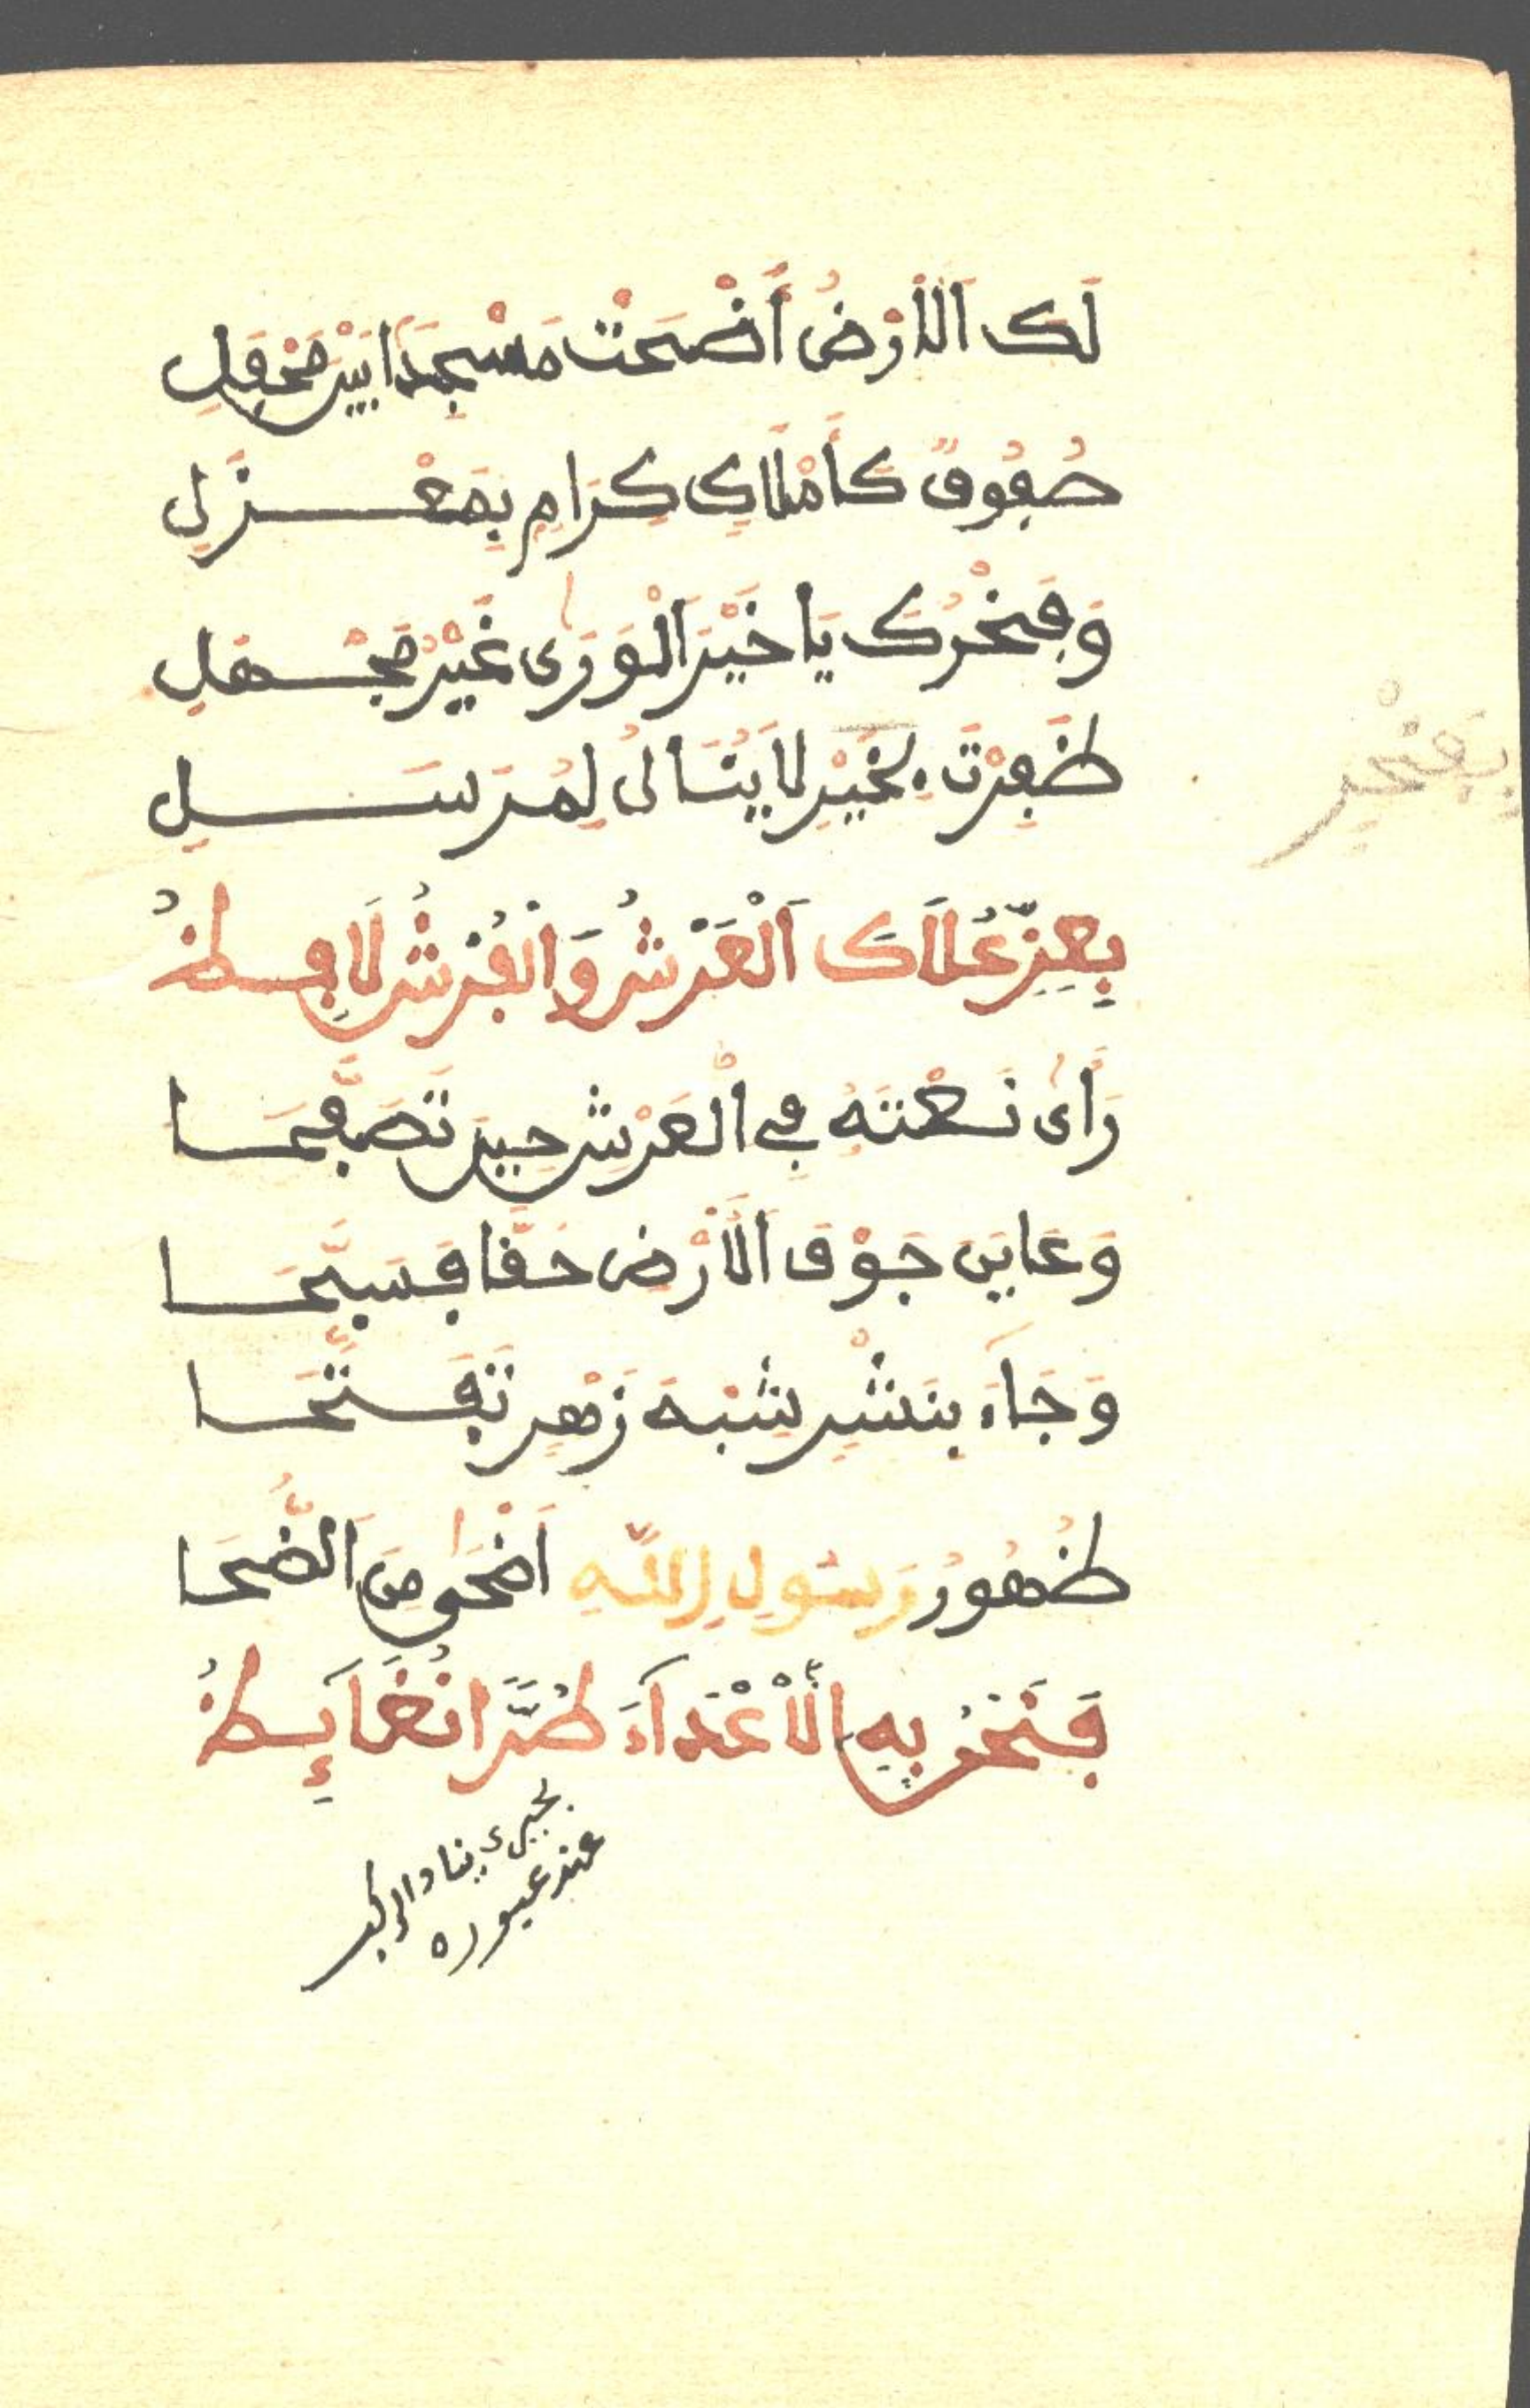 لَكَ اَلْأَرْضُ أَضْحَتْ مَسْجِدًا بَيْنَ مَحْفِلِ
صُفُوفٌ كَأَمْلَاكٍ كِرَامٍ بِمَعْزَلِ
وَفَخْرُكَ يَا خَيْرَ اَلْوَرَى غَيْرُ مَجْهَلِ
ظَفِرْتَ بِخَيْرٍ لَا يُنَالُ لِمُرْسَلِ
بِعِزِّ عُلَاكَ اَلْعَرْشُ وَالْفُرْشُ لَافِظُ
رَأَى نَعْتَهُ فِي الْعَرْشِ حِينَ تَصَفَّحَا
وَعَايَنَ جَوْفَ اَلْأَرْضِ حَقًّا فَسَبَّحَا
وَجَاءَ بِنَشْرٍ شِبْهَ زَهْرٍ تَفَتَّحَا
ظُهُورُ رَسُولِ اِللَّهِ اَضْحَى مِنَ اَلضُّحَا
فَنَحْنُ بِهِ اَلْأَعْدَآءَ طُرًّا نُغَآئِظُ
بِفَخْرٍ